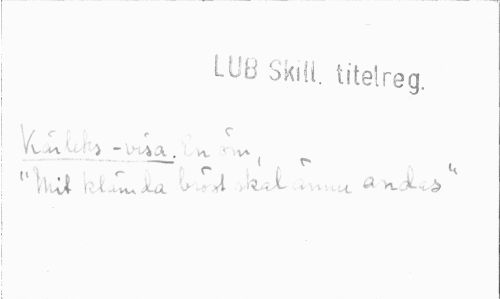 LUB Skill. titelreg.
Kärleks-visa. En öm,
"Mit klämda bröst skal ännu andas"